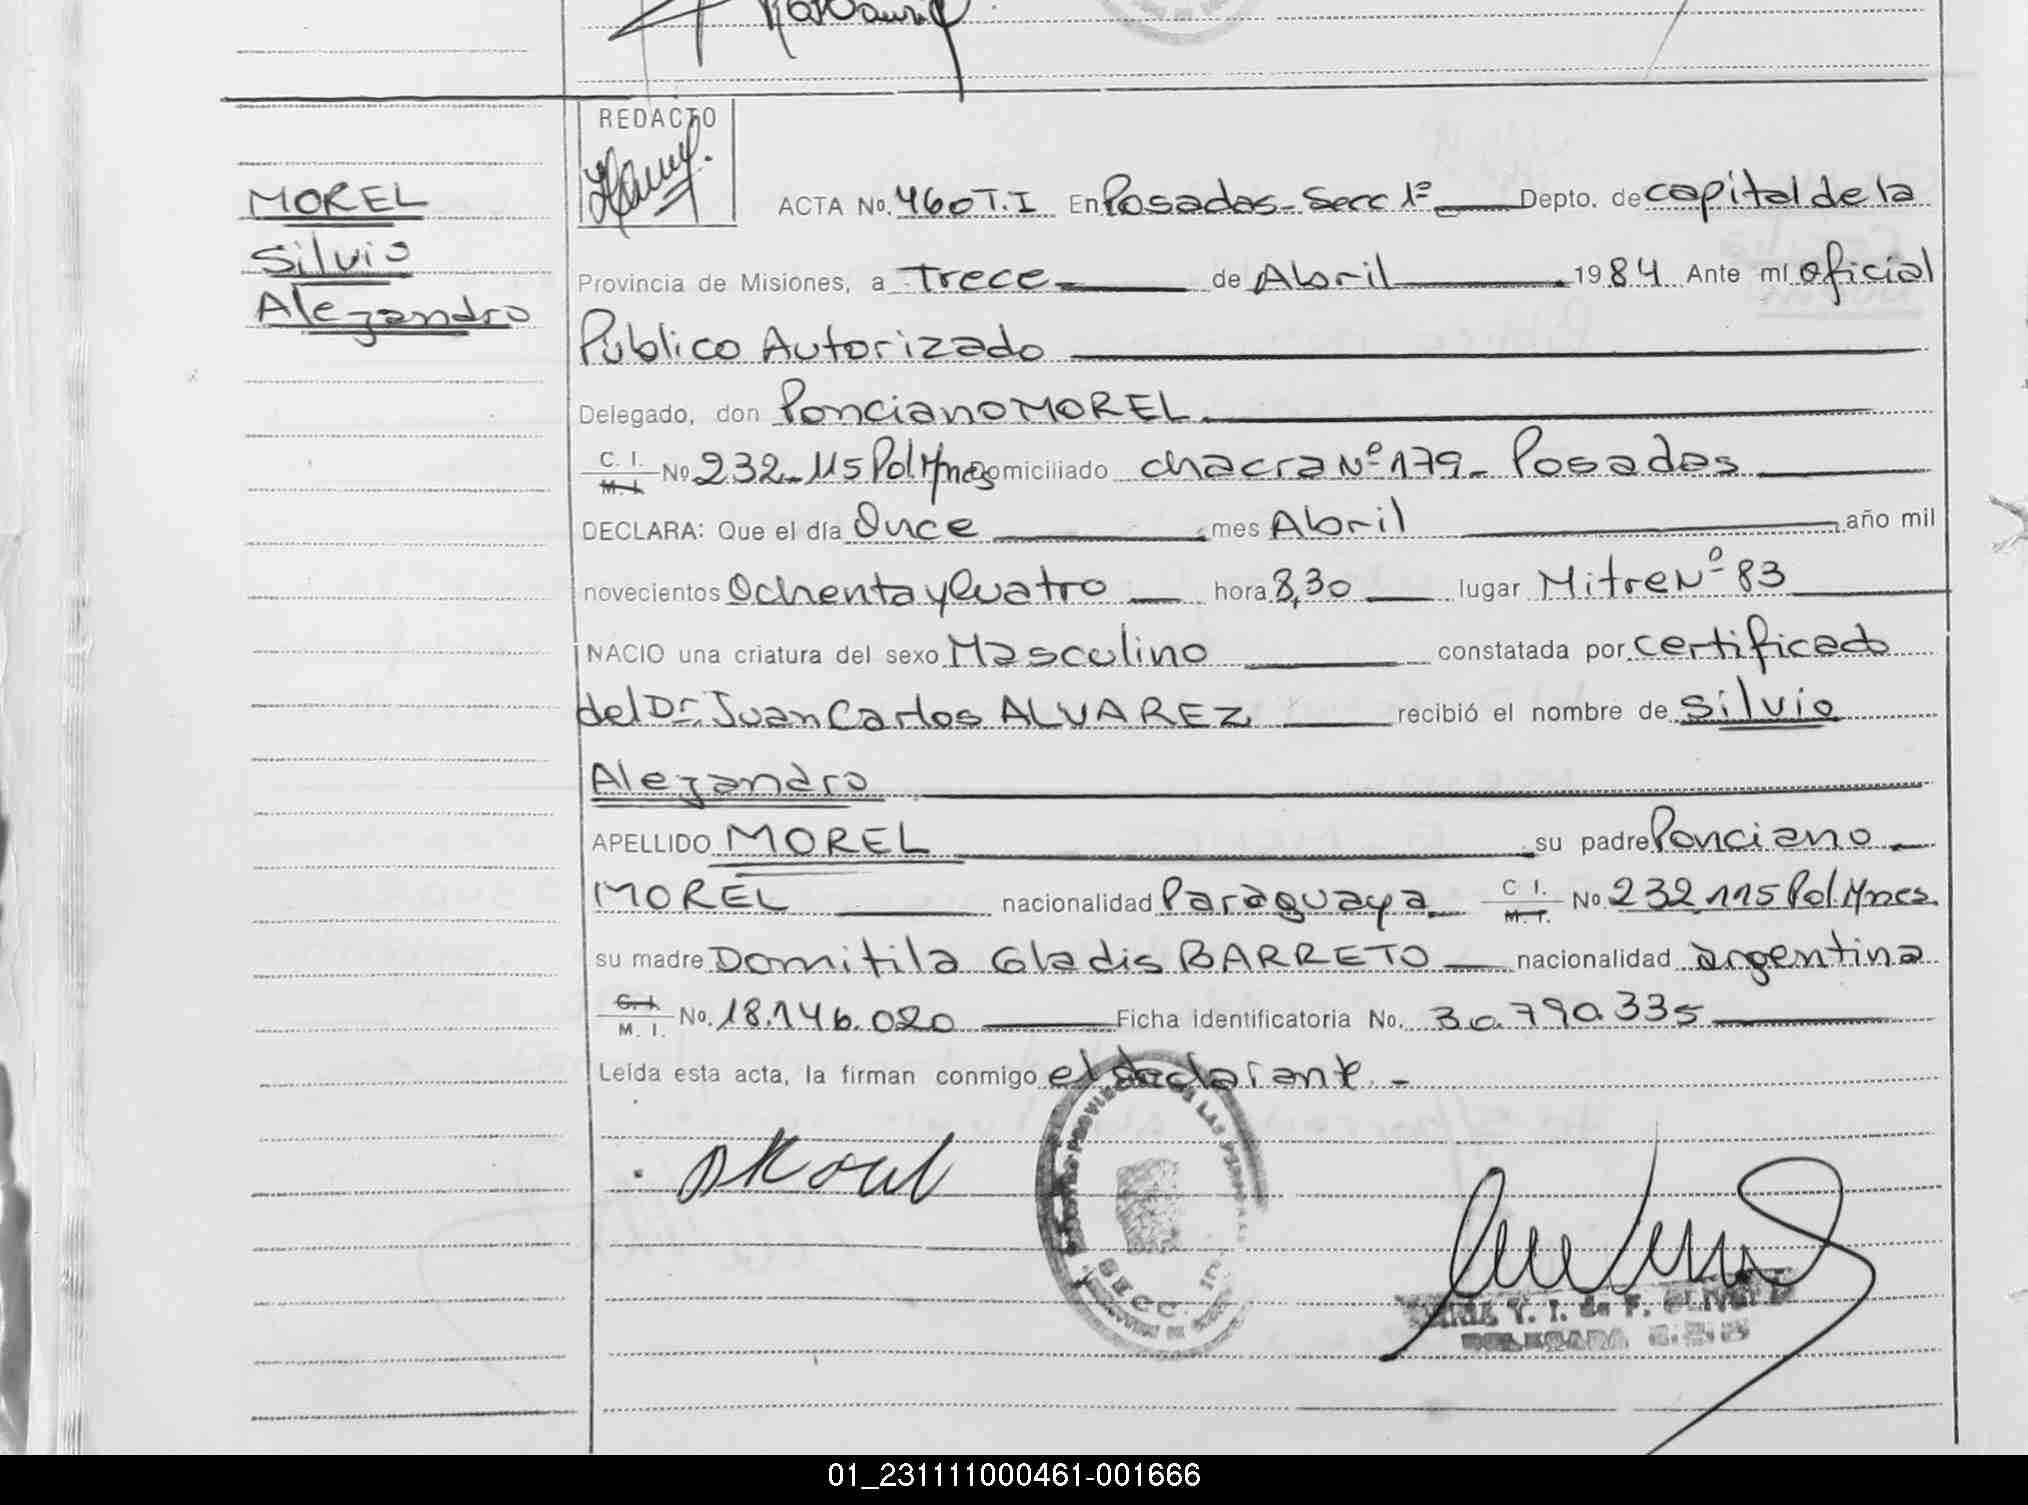 REDACTO
MOREL
Silvio
Alejandro
ACTA No. 460 T.I En Posadas - Secc 1º Depto. de capital de la
Provincia de Misiones, a Trece de Abril 1984 Ante mí oficial
Público Autorizado
Delegado, don Ponciano MOREL
C. I. M. I. No 232.115 Pol Mnes domiciliado chacra Nº 179 - Posadas
DECLARA: Que el día Once mes Abril año mil
novecientos Ochenta y Cuatro hora 8,30 lugar Mitre Nº 83
NACIO una criatura del sexo Masculino constatada por certificado
del Dr. Juan Carlos ALVAREZ recibió el nombre de Silvio
Alejandro
APELLIDO MOREL su padre Ponciano
MOREL nacionalidad Paraguaya C I. M. I. No 232.115 Pol. Mnes.
su madre Domitila Gladis BARRETO nacionalidad argentina
C. I. M. I. No. 18.146.020 Ficha identificatoria No. 30.790.335
Leída esta acta, la firman conmigo el declarante. -
SECC.
Y. I. de F.
DELEGADA
01_231111000461-001666